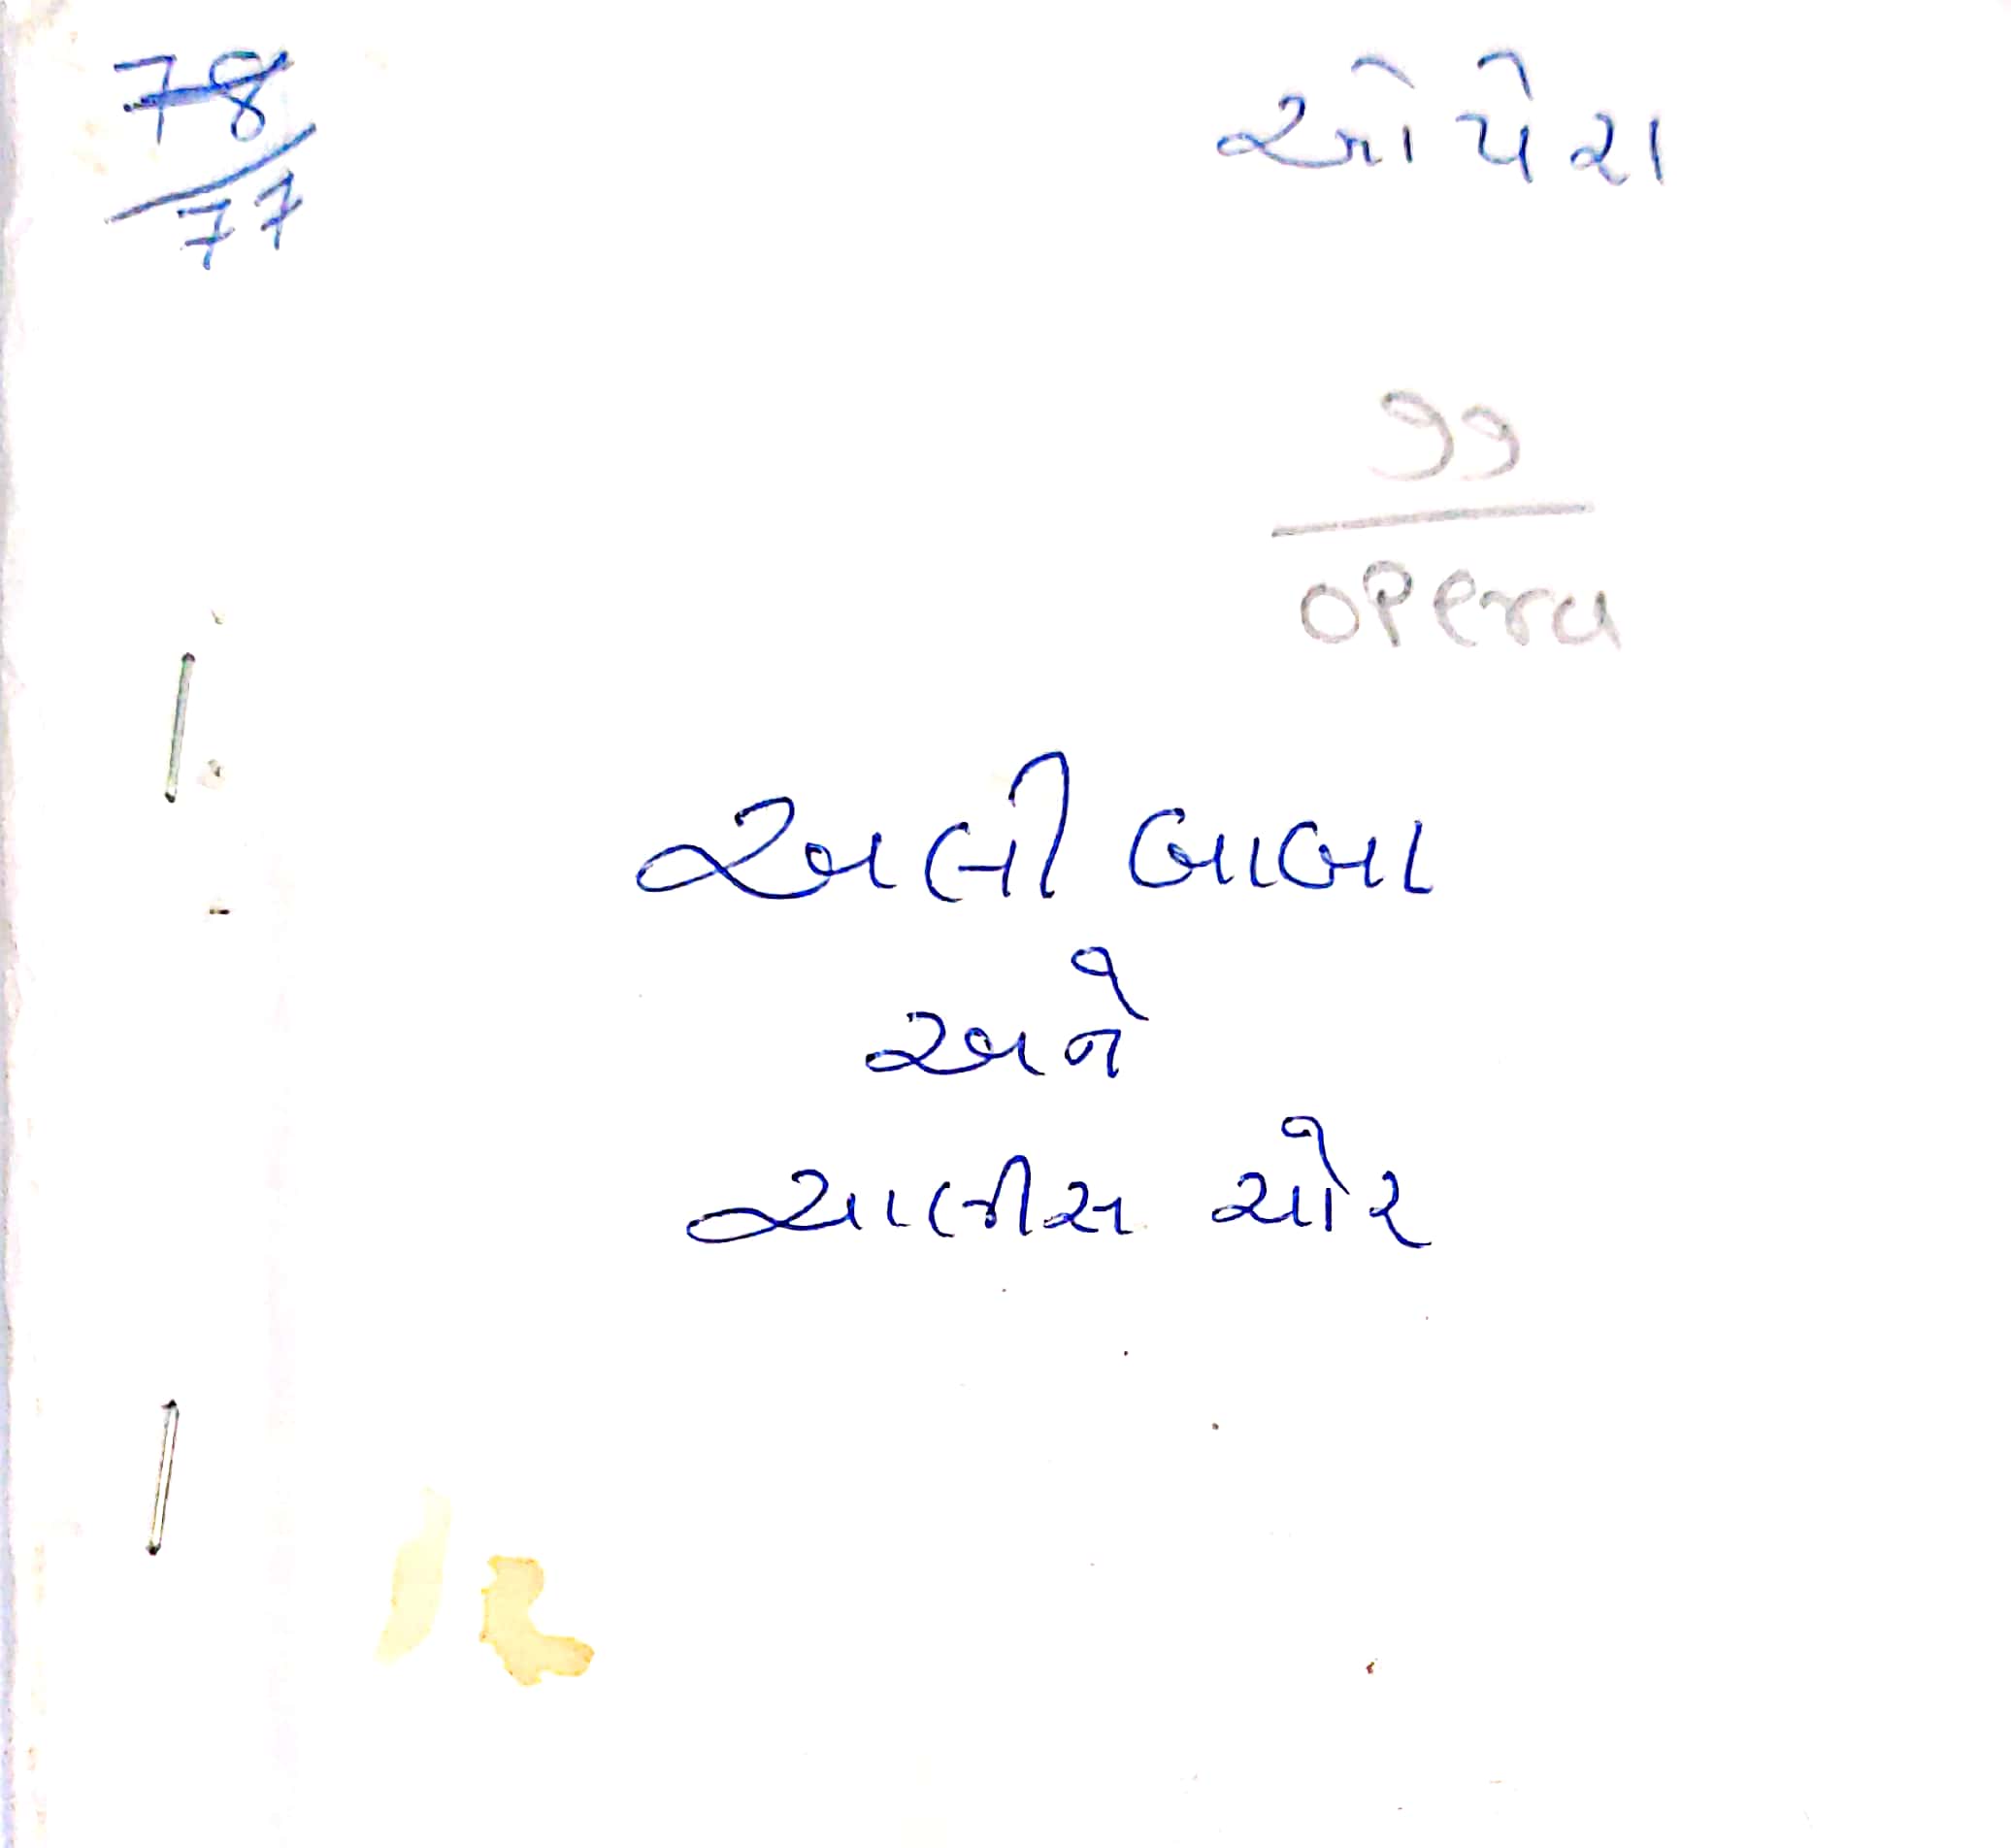 78
77
ઓપેરા
૭૭
opera
અલી બાબા
અને
ચાલીસ ચોર